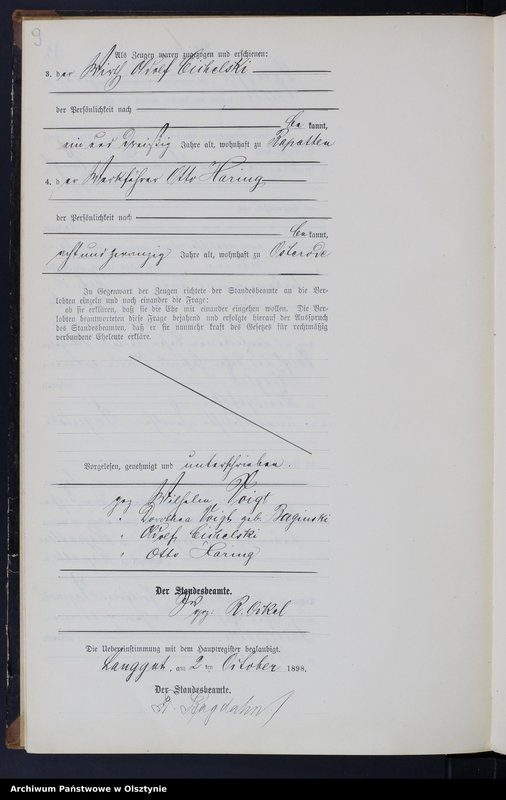 9
Als Zeugen waren zugezogen und erschienen:
3. der Wirth Adolf Cichelski
der Persönlichkeit nach
be kannt,
ein und dreißig Jahre alt, wohnhaft zu Rapatten
4. der Werkführer Otto Haring
der Persönlichkeit nach
be kannt,
achtundzwanzig Jahre alt, wohnhaft zu Osterode
In Gegenwart der Zeugen richtete der Standesbeamte an die Ver-
lobten einzeln und nach einander die Frage:
ob sie erklären, daß sie die Ehe mit einander eingehen wollen. Die Ver-
lobten beantworteten diese Frage bejahend und erfolgte hierauf der Ausspruch
des Standesbeamten, daß er sie nunmehr kraft des Gesetzes für rechtmäßig
verbundene Eheleute erkläre.
Vorgelesen, genehmigt und unterschrieben.
gez Wilhelm Voigt
" Dorothea Voigt geb. Baginski
" Adolf Cichelski
" Otto Haring
Der Standesbeamte.
gez: R. Oikel
Die Uebereinstimmung mit dem Hauptregister beglaubigt.
Langgut, am 2 ten October 1898.
Der Standesbeamte.
Bagdahn
Archiwum Państwowe w Olsztynie